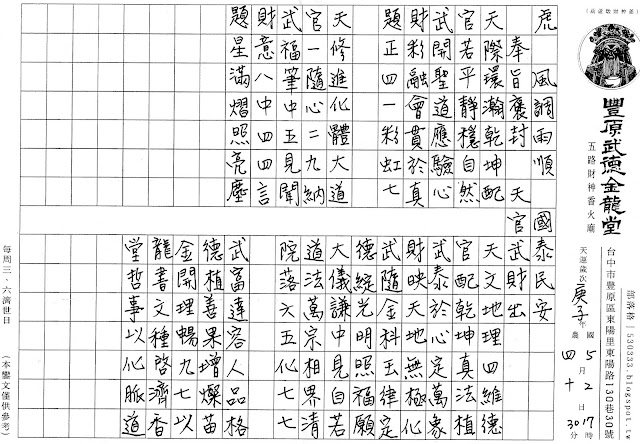 (武運啟財神尊)
豐原武德金龍堂
五路財神香火廟
部落格 | 530333.blogspot.tw
台中市豐原區東陽里東陽路130巷30號
天運歲次庚子年 國 5月2日17時
農 四 十 30分
虎 風調雨順 國泰民安
奉旨褒封 天官武財出
天際環瀚乾坤配
官若平靜穩自然
武開聖道應驗心
財彩融會貫於真
題正四一彩虹七
天修進化體大道
官一隨心二九納
武福筆中五見聞
財意八中四四言
題星滿熠照亮塵
天文地理四維德
官配乾坤真法植
武泰於心定萬象
財映天地無極化
武隨金科玉律定
德綻光明照福願
大儀謙中見自若
道法萬宗相界清
院落六五化七七
武富達容人品格
德植善果增燦苗
金開理暢九七以
龍書文種啓濟香
堂哲事以化脈道
每周三、六濟世日
(本鸞文僅供參考)